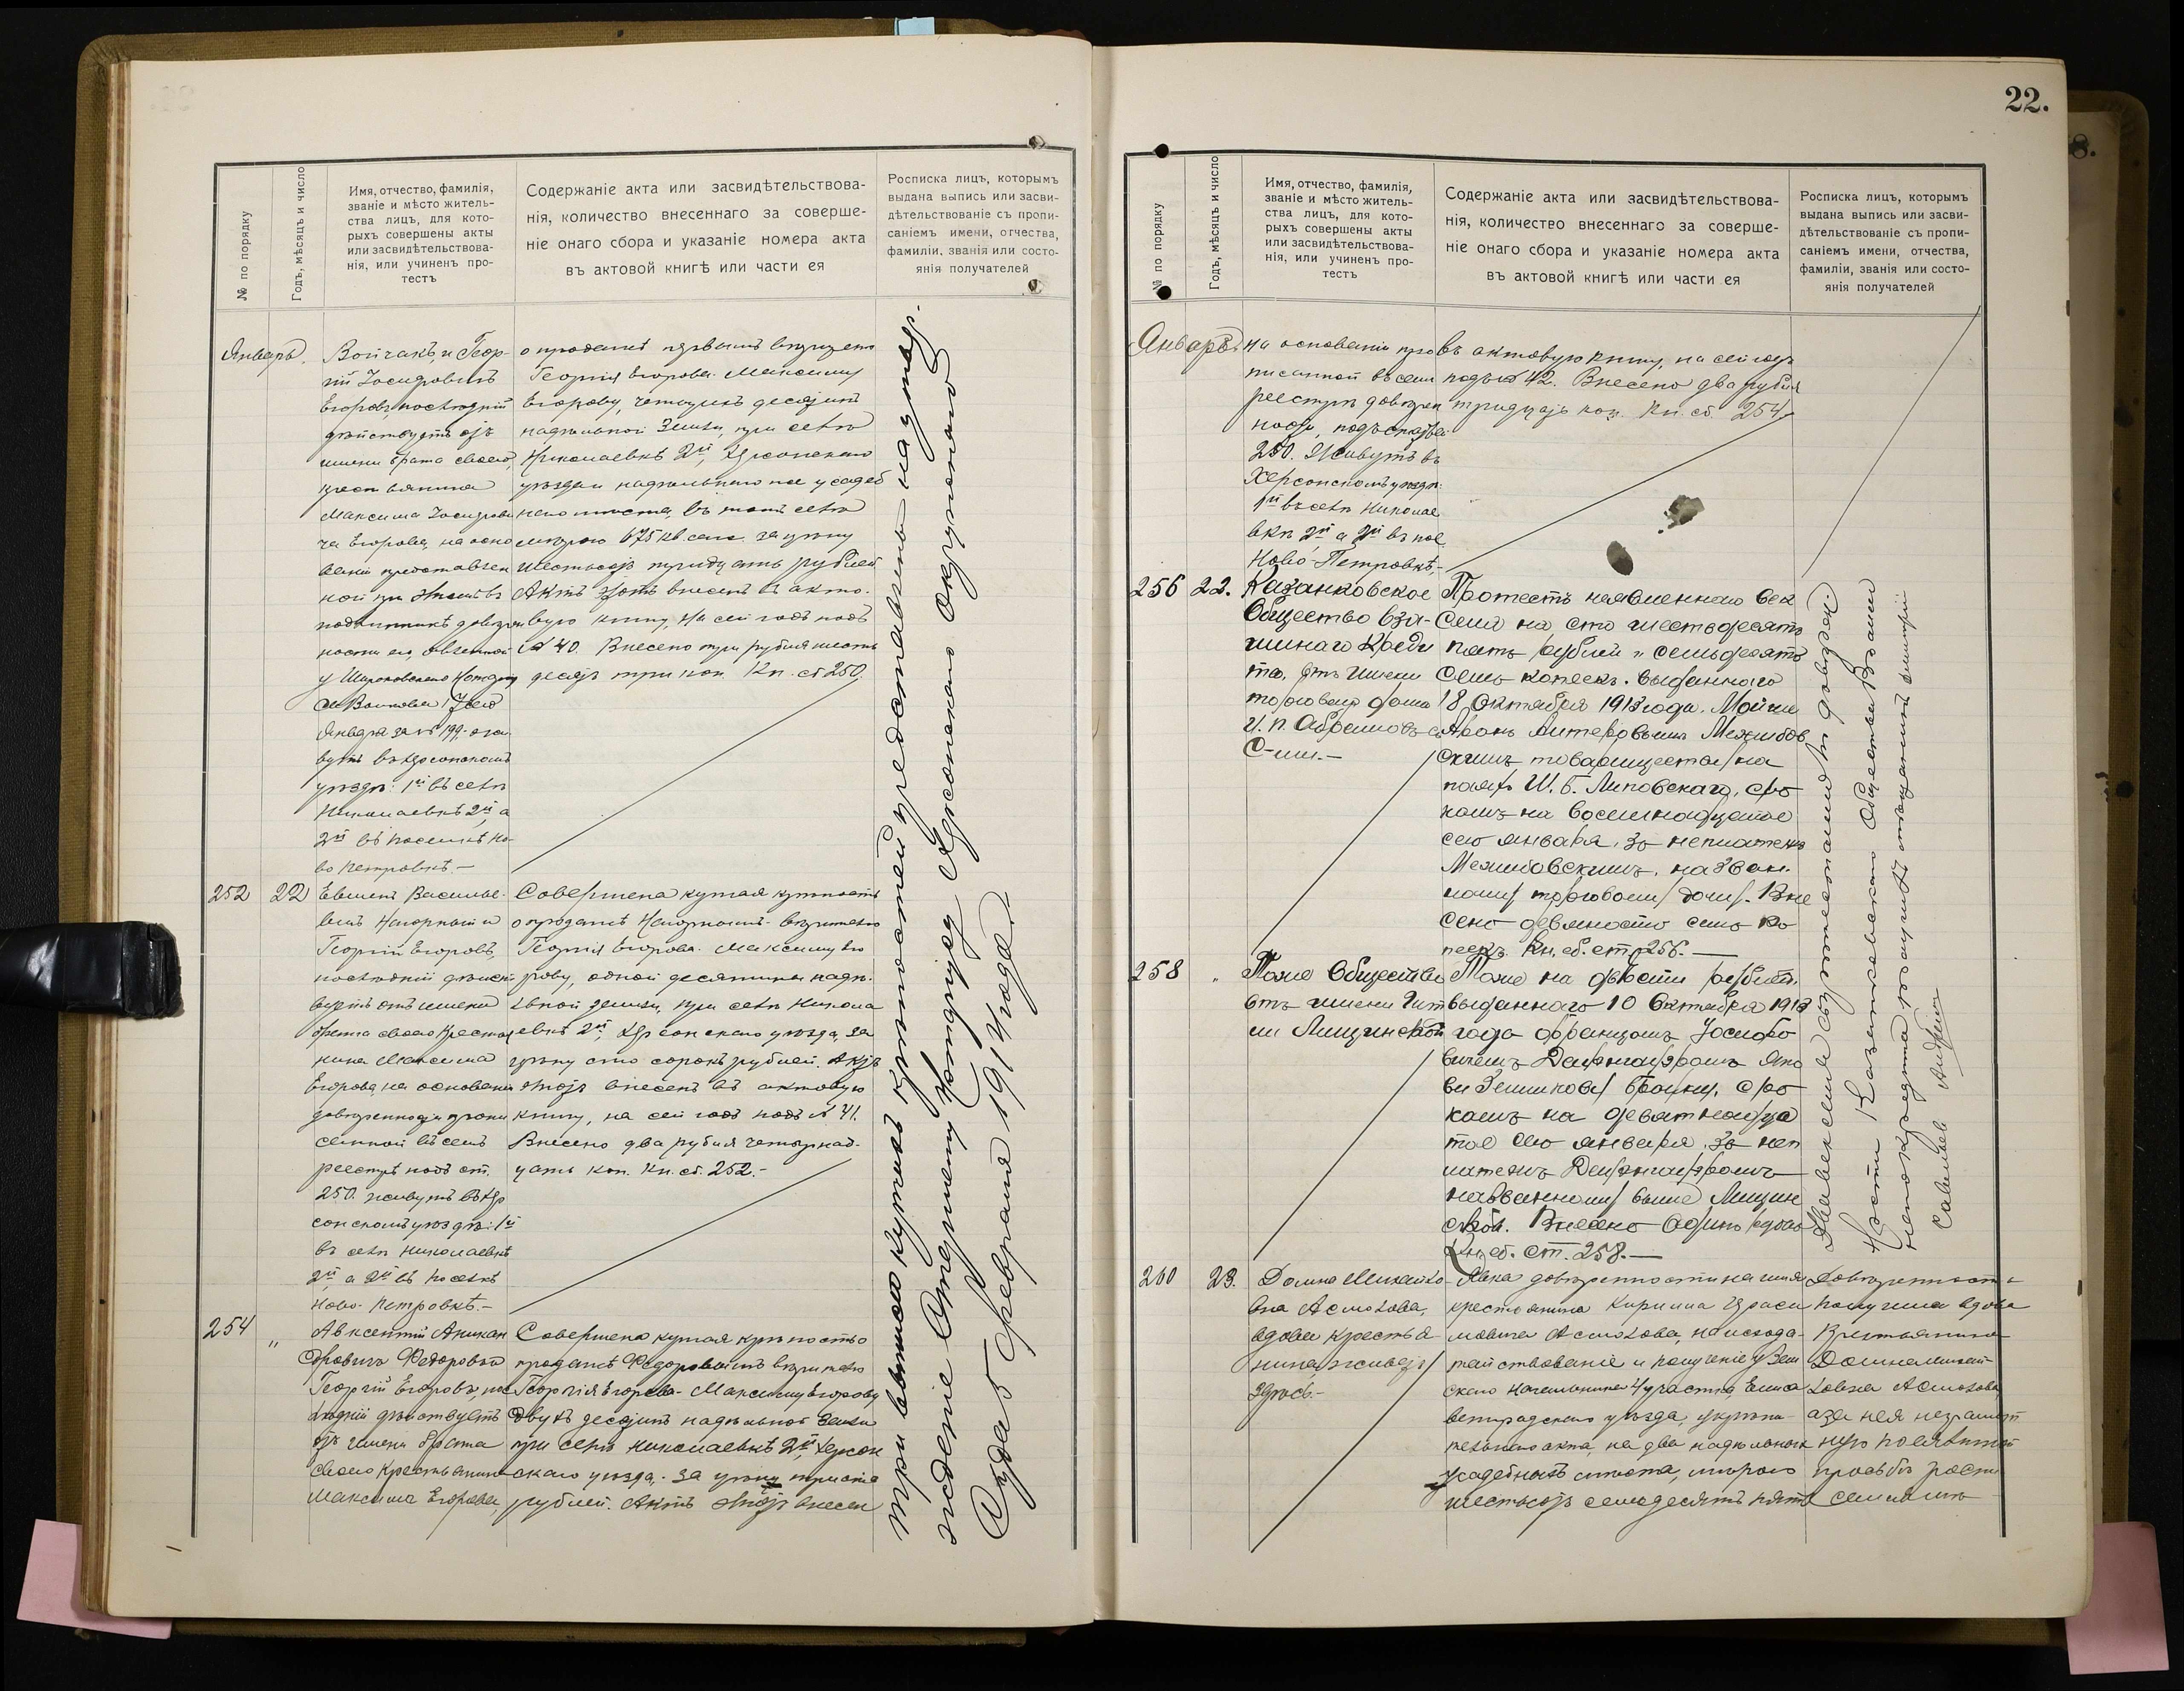 22.
№ по порядку
Годъ, мѣсяцъ и число
Имя, отчество, фамилія,
званіе и мѣсто житель-
ства лицъ, для кото-
рыхъ совершены акты
или засвидѣтельствова-
нія, или учиненъ про-
тестъ
Содержаніе акта или засвидѣтельствова-
нія, количество внесеннаго за соверше-
ніе онаго сбора и указаніе номера акта
въ актовой книгѣ или части ея
Росписка лицъ, которымъ
выдана выпись или засви-
дѣтельствованіе съ пропи-
саніемъ имени, отчества,
фамиліи, званія или состо-
янія получателей
Январь.
Войчакъ и Геор-
гій Іосифовичъ
Егоровъ, послѣдній
дѣйствуетъ отъ
имени брата своего,
крестьянина
Максима Іосифови
ча Егорова, на осно
ваніи представлен
ной при этомъ въ
подлинникѣ довѣрен
ности его, явленной
у
Января за № 199. жи
вутъ въ Херсонскомъ
уѣздѣ: 1й въ селѣ
Николаевкѣ 2й, а
2й въ поселкѣ Но-
во Петровкѣ.—
о продажѣ первымъ вѣрителю
Георгія Егорова Максиму
Егорову, четырехъ десятинъ
надѣльной земли, при селѣ
Николаевкѣ 2й, Херсонскаго
уѣзда и надѣльнаго усадеб
наго мѣста, въ томъ селѣ
мѣрою 675 кв. саж. за цѣну
шестьсотъ тридцать рублей
Актъ этотъ внесенъ въ акто-
вую книгу, на сей годъ подъ
№ 40. Внесено три рубля шесть
десятъ три коп. Кн. сб. 250.
252
22
Евменъ Василье-
вичъ Нагорный и
Георгій Егоровъ,
послѣдній дѣйст
вуетъ отъ имени
брата своего крестья
нина Максима
Егорова, на основаніи
довѣренности пропи
санной въ семъ
реестрѣ подъ ст.
250. живутъ въ Хер
сонскомъ уѣздѣ: 1й
въ селѣ Николаевкѣ
2й а 2й въ поселкѣ
Ново-Петровкѣ.—
Совершена купчая крѣпость
о продажѣ Нагорнымъ вѣрителю
Георгія Егорова Максиму Его
рову, одной десятины надѣ-
льной земли, при селѣ Никола
евкѣ 2й, Херсонскаго уѣзда, за
цѣну сто сорокъ рублей. Актъ
этотъ внесенъ въ актовую
книгу, на сей годъ подъ № 41.
Внесено два рубля четырнад-
цать коп. Кн. сб. 252.—
254
"
Авксентій Аникан
дровичъ Федоровъ и
Георгій Егоровъ, пос
лѣдній дѣйствуетъ
отъ имени брата
своего крестьянина
Максима Егорова,
Совершена купчая крѣпость о
продажѣ Федоровымъ вѣрителю
Георгія Егорова Максиму Егорову
двухъ десятинъ надѣльной земли
при селѣ Николаевкѣ 2й, Херсон
скаго уѣзда, за цѣну триста
рублей. Актъ этотъ внесен
три выписи купчихъ крѣпостей представлены на утвер-
жденіе Старшему Нотаріусу Херсонскаго Окружнаго
Суда 5 Февраля 1914 года.
№ по порядку
Годъ, мѣсяцъ и число
Имя, отчество, фамилія,
званіе и мѣсто житель-
ства лицъ, для кото-
рыхъ совершены акты
или засвидѣтельствова-
нія, или учиненъ про-
тестъ
Содержаніе акта или засвидѣтельствова-
нія, количество внесеннаго за соверше-
ніе онаго сбора и указаніе номера акта
въ актовой книгѣ или части ея
Росписка лицъ, которымъ
выдана выпись или засви-
дѣтельствованіе съ пропи-
саніемъ имени, отчества,
фамиліи, званія или состо-
янія получателей
Январь
на основаніи про
писанной въ семъ
реестрѣ довѣрен
ности, подъ статьей
250. Живутъ въ
Херсонскомъ уѣздѣ:
1й въ селѣ Николае
вкѣ 2й а 2й въ пос.
Ново-Петровкѣ.—
въ актовую книгу, на сей годъ
подъ № 42. Внесено два рубля
тридцать коп. Кн. сб. 254.
256
22.
Казанковское
Общество Вза-
имнаго Креди
та, отъ имени
торговаго дома
И. П. Абрамовъ съ
С-ми.—
Протестъ неявленнаго век
селя на сто шестьдесятъ
пять рублей и семьдесятъ
семь копеекъ. выданнаго
18 Октября 1913 года.
скимъ товарищества на
паяхъ Ш. Б. Липовскаго, сро
комъ на восемнадцатое
сего января, за неплатежъ
Межибовскимъ, назван-
ному торговому дому. Вне
сено девяносто семь ко
пеекъ. Кн. сб. ст. 256.—
258
"
Тоже Общество
отъ имени
Лищинской
Тоже на двѣсти рублей,
выданнаго 10 Октября 1913
года Францомъ Іосифо
вичемъ
комъ на девятнадца
тое сего января, за неп
латежъ
названному выше Лищин
ской. Внесено одинъ рубль
Кн. сб. ст. 258.—
Два векселя съ протестами
Казанковскаго Общества Взаим
наго Кредита получилъ
Савельев
260
23.
Домна Михайло
вна Асмолова,
вдова крестья-
нина, живетъ
здѣсь.—
Явка довѣренности на имя
крестьянина Кирилла Гераси
мовича Асмолова, на хода-
тайствованіе и полученіе у Зем
скаго Начальника 4 участка Елиса
ветградскаго уѣзда, укрѣпи-
тельнаго акта, на два надѣльныхъ
усадебныхъ мѣста, мѣрою
шестьсотъ семьдесятъ пять
Довѣренность
получила вдова
крестьянина
Домна Михай-
ловна Асмолова
а за нея неграмот
ную по личной
просьбѣ распи